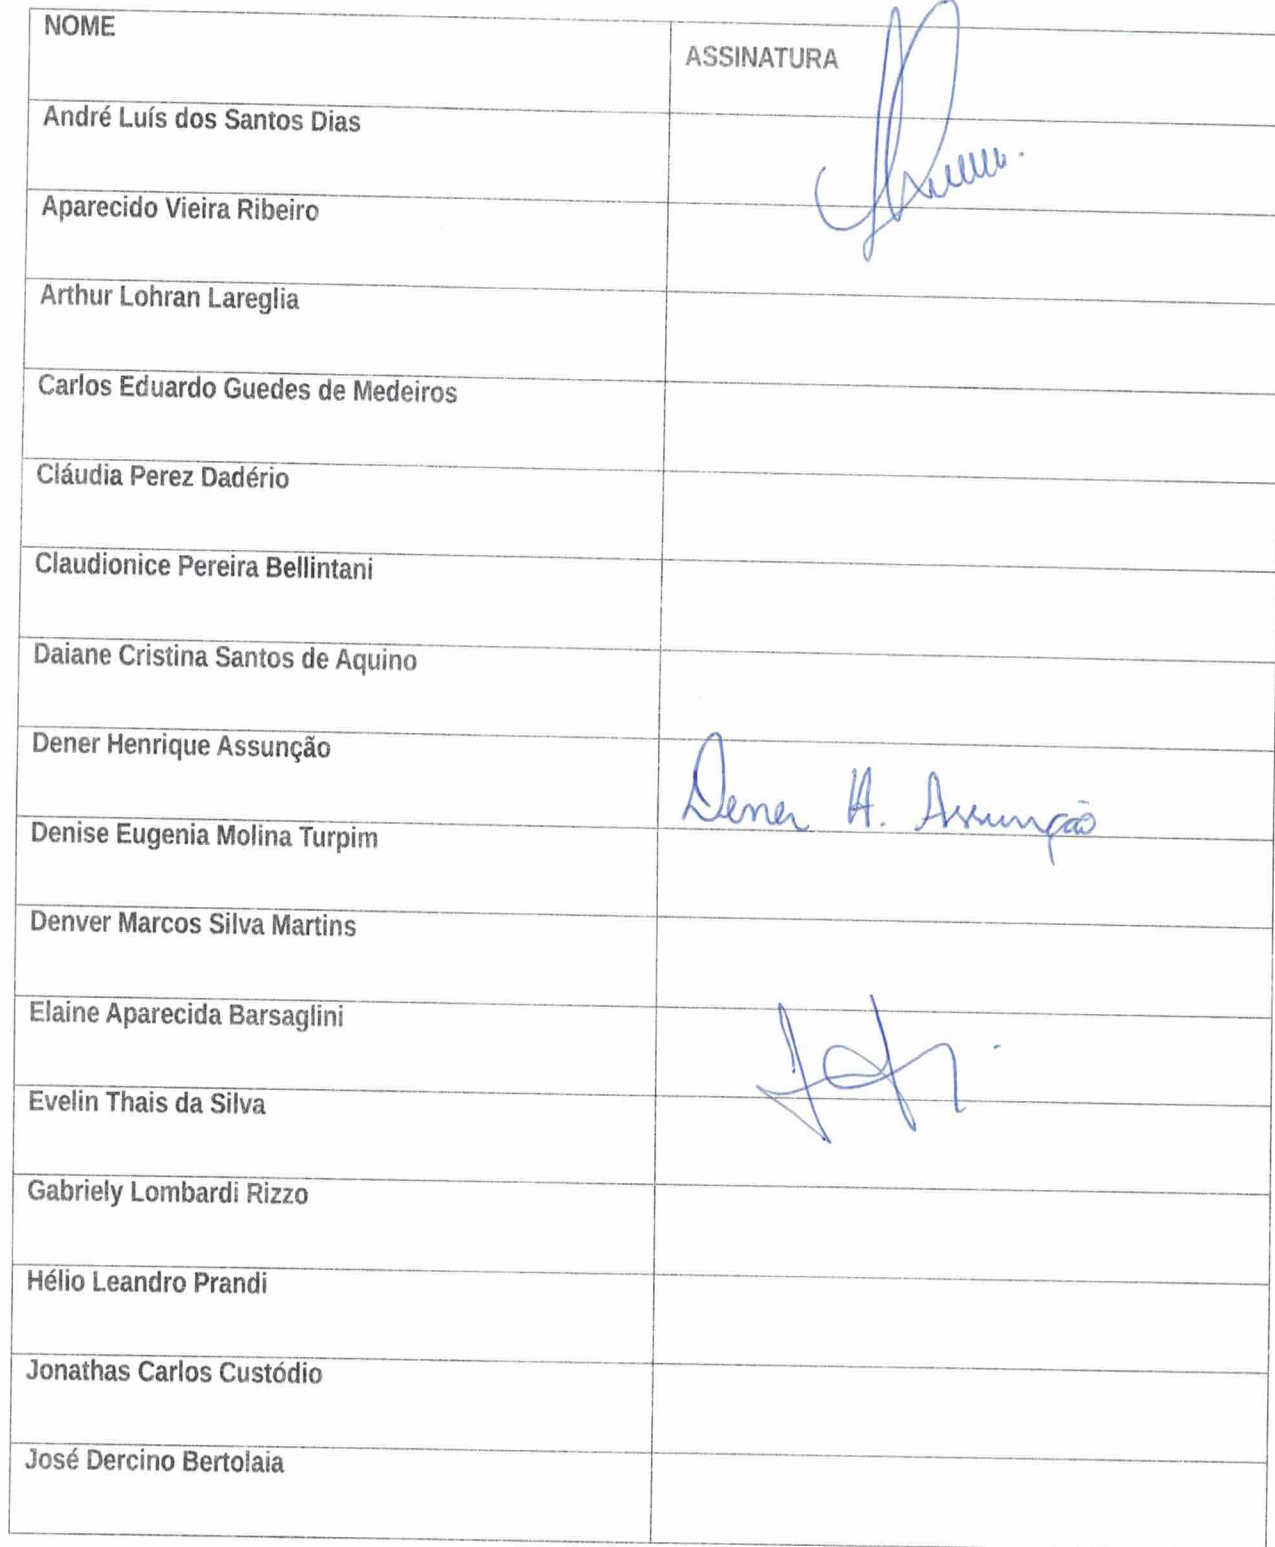 NOME
ASSINATURA
André Luís dos Santos Dias
Aparecido Vieira Ribeiro
Arthur Lohran Lareglia
Carlos Eduardo Guedes de Medeiros
Cláudia Perez Dadério
Claudionice Pereira Bellintani
Daiane Cristina Santos de Aquino
Dener Henrique Assunção
Dener H. Assunção
Denise Eugenia Molina Turpim
Denver Marcos Silva Martins
Elaine Aparecida Barsaglini
Evelin Thais da Silva
Gabriely Lombardi Rizzo
Hélio Leandro Prandi
Jonathas Carlos Custódio
José Dercino Bertolaia